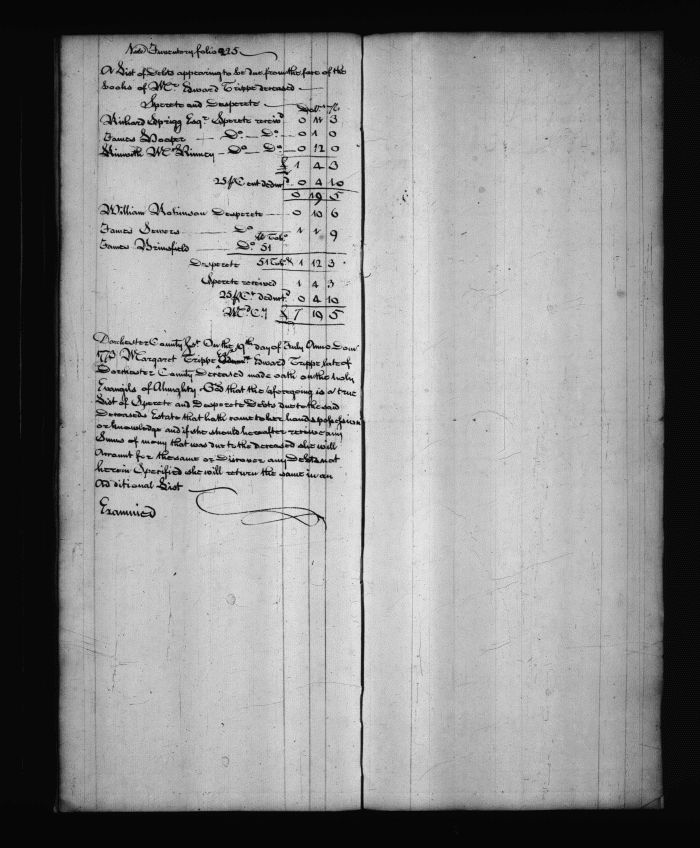 Vide Inventory folio 225
A List of Debts appearing to be due from the face of the
books of Mr. Edward Trippe deceased
Sperate and Desperate
Richard Sprigg Esqr. Sperate receivd 0 11 3
James Hooper Do. Do. 0 1 0
McKinney Do. Do. 0 12 0
£ 1 4 3
25 p Cent deduct. 0 4 10
0 19 5
William Robinson Desperate 0 10 6
James Sewers Do 1 1 9
lb Tobo.
James Brinsfield Do 51
Desperate 51 Tobo. & 1 12 3
Sperate received 1 4 3
25 p Ct. deduct. 0 4 10
£ 19 5
Dorchester County Ss. On the 19th day of July Anno Dom
Margaret Trippe Edward Trippe late of
Dorchester County Deceased made oath on the holy
Evangils of Almighty God that the aforegoing is a true
List of Sperate and Desperate Debts due to the said
Deceaseds Estate that hath come to her hands possession
or knowledge and if she should hereafter receive any
Sums of money that was due to the deceased she will
Account for the same or Discover any Debts not
herein Specified she will return the same in an
Additional List
Examined